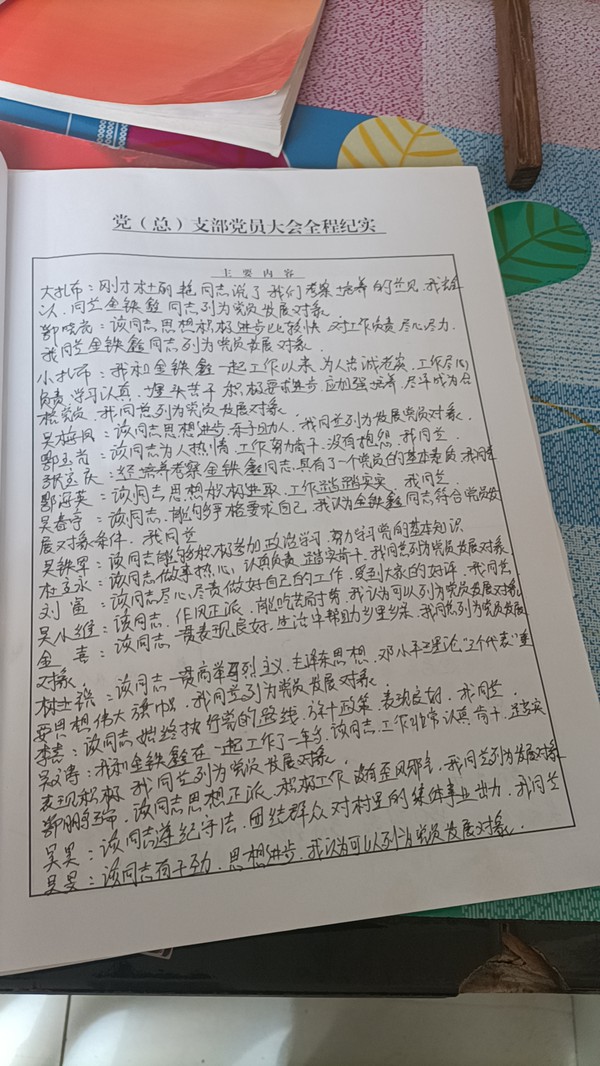 党（总）支部党员大会全程纪实
主要内容
大扎布：刚才杜丽艳同志说了我们考察培养的意见，我
认，同意金铁鑫同志列为党员发展对象。
鄂晓花：该同志思想积极进步比较快，对工作负责尽心尽力，
我同意金铁鑫同志列为党员发展对象。
小扎布：我和金铁鑫一起工作以来，为人忠诚老实，工作尽
负责，学习认真，埋头苦干，积极要求进步，应加强培养，尽早成为合
格党员，我同意列为党员发展对象。
吴梅凤：该同志思想进步，乐于助人，我同意列为发展党员对象。
鄂玉尚：该同志为人热情，工作努力肯干，没有抱怨，我同意
张宝庆：经培养考察金铁鑫同志，具有了一个党员的基本素质，我同意
鄂海英：该同志思想积极进取，工作踏踏实实，我同意
吴春宁：该同志，能够严格要求自己，我认为金铁鑫同志符合党员发
展对象条件，我同意
吴铁军：该同志能够积极参加政治学习，努力学习党的基本知识
杜玉永：该同志做事热心，认真负责，踏实肯干，我同意列为党员发展对象
刘富：该同志尽心尽责做好自己的工作，受到大家的好评，我同意
吴小维：该同志，作风正派，能吃苦耐劳，我认为可以列为党员发展对象
金喜：该同志一贯表现良好，生活中帮助乡里乡亲，我同意列为党员发展
对象
林土锁：该同志一贯高举马列主义、毛泽东思想、邓小平理论、“三个代表”重
要思想伟大旗帜，我同意列为党员发展对象
李志：该同志始终执行党的路线、方针政策，表现良好，我同意
吴文涛：我和金铁鑫在一起工作了一年多，该同志工作非常认真肯干，踏实
表现积极，我同意列为党员发展对象
鄂鹏瑞：该同志思想正派，积极工作，没有歪风邪气，我同意列为发展对象
吴昊：该同志遵纪守法，团结群众，对村里的集体事业出力，我同意
吴昱：该同志有干劲，思想进步，我认为可以列为党员发展对象。